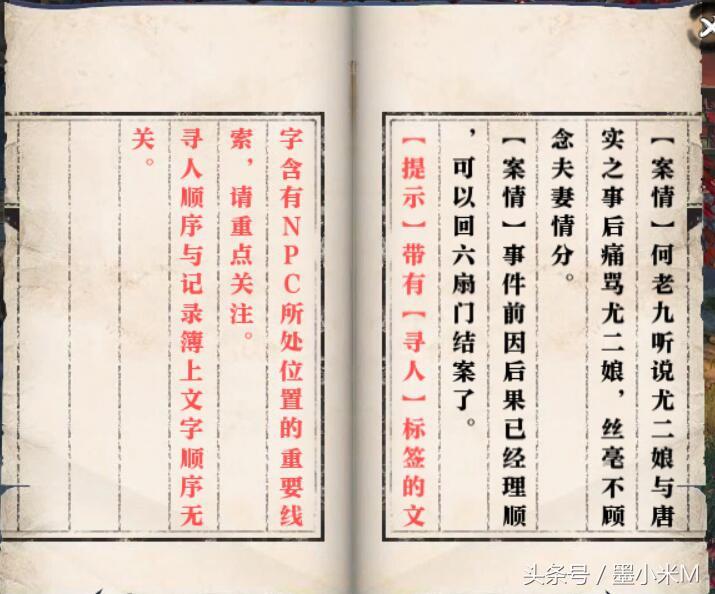 【案情】何老九听说尤二娘与唐
实之事后痛骂尤二娘，丝毫不顾
念夫妻情分。
【案情】事件前因后果已经理顺
，可以回六扇门结案了。
【提示】带有【寻人】标签的文
字含有NPC所处位置的重要线
索，请重点关注。
寻人顺序与记录簿上文字顺序无
关。
头条号 / 墨小米M